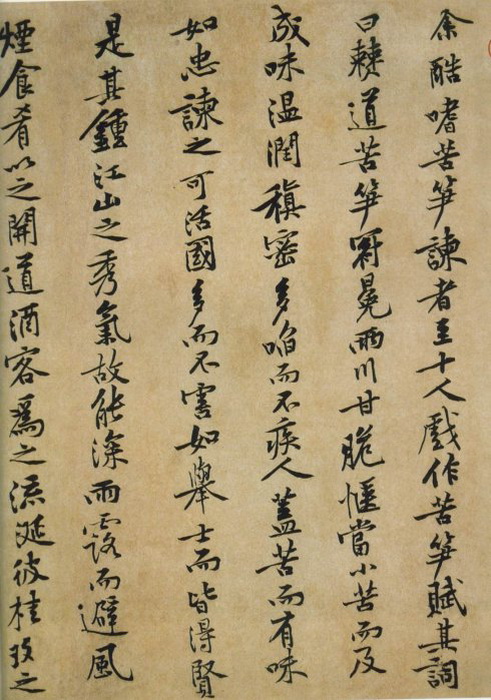 余酷嗜苦笋諫者至十人戲作苦笋賦其詞
曰僰道苦笋冠冕兩川甘脆愜當小苦而及
成味温潤稹密多啗而不疾人蓋苦而有味
如忠諫之可活國多而不害如舉士而皆得賢
是其鍾江山之秀氣故能深雨露而避風
煙食肴以之開道酒客爲之流涎彼桂玫之